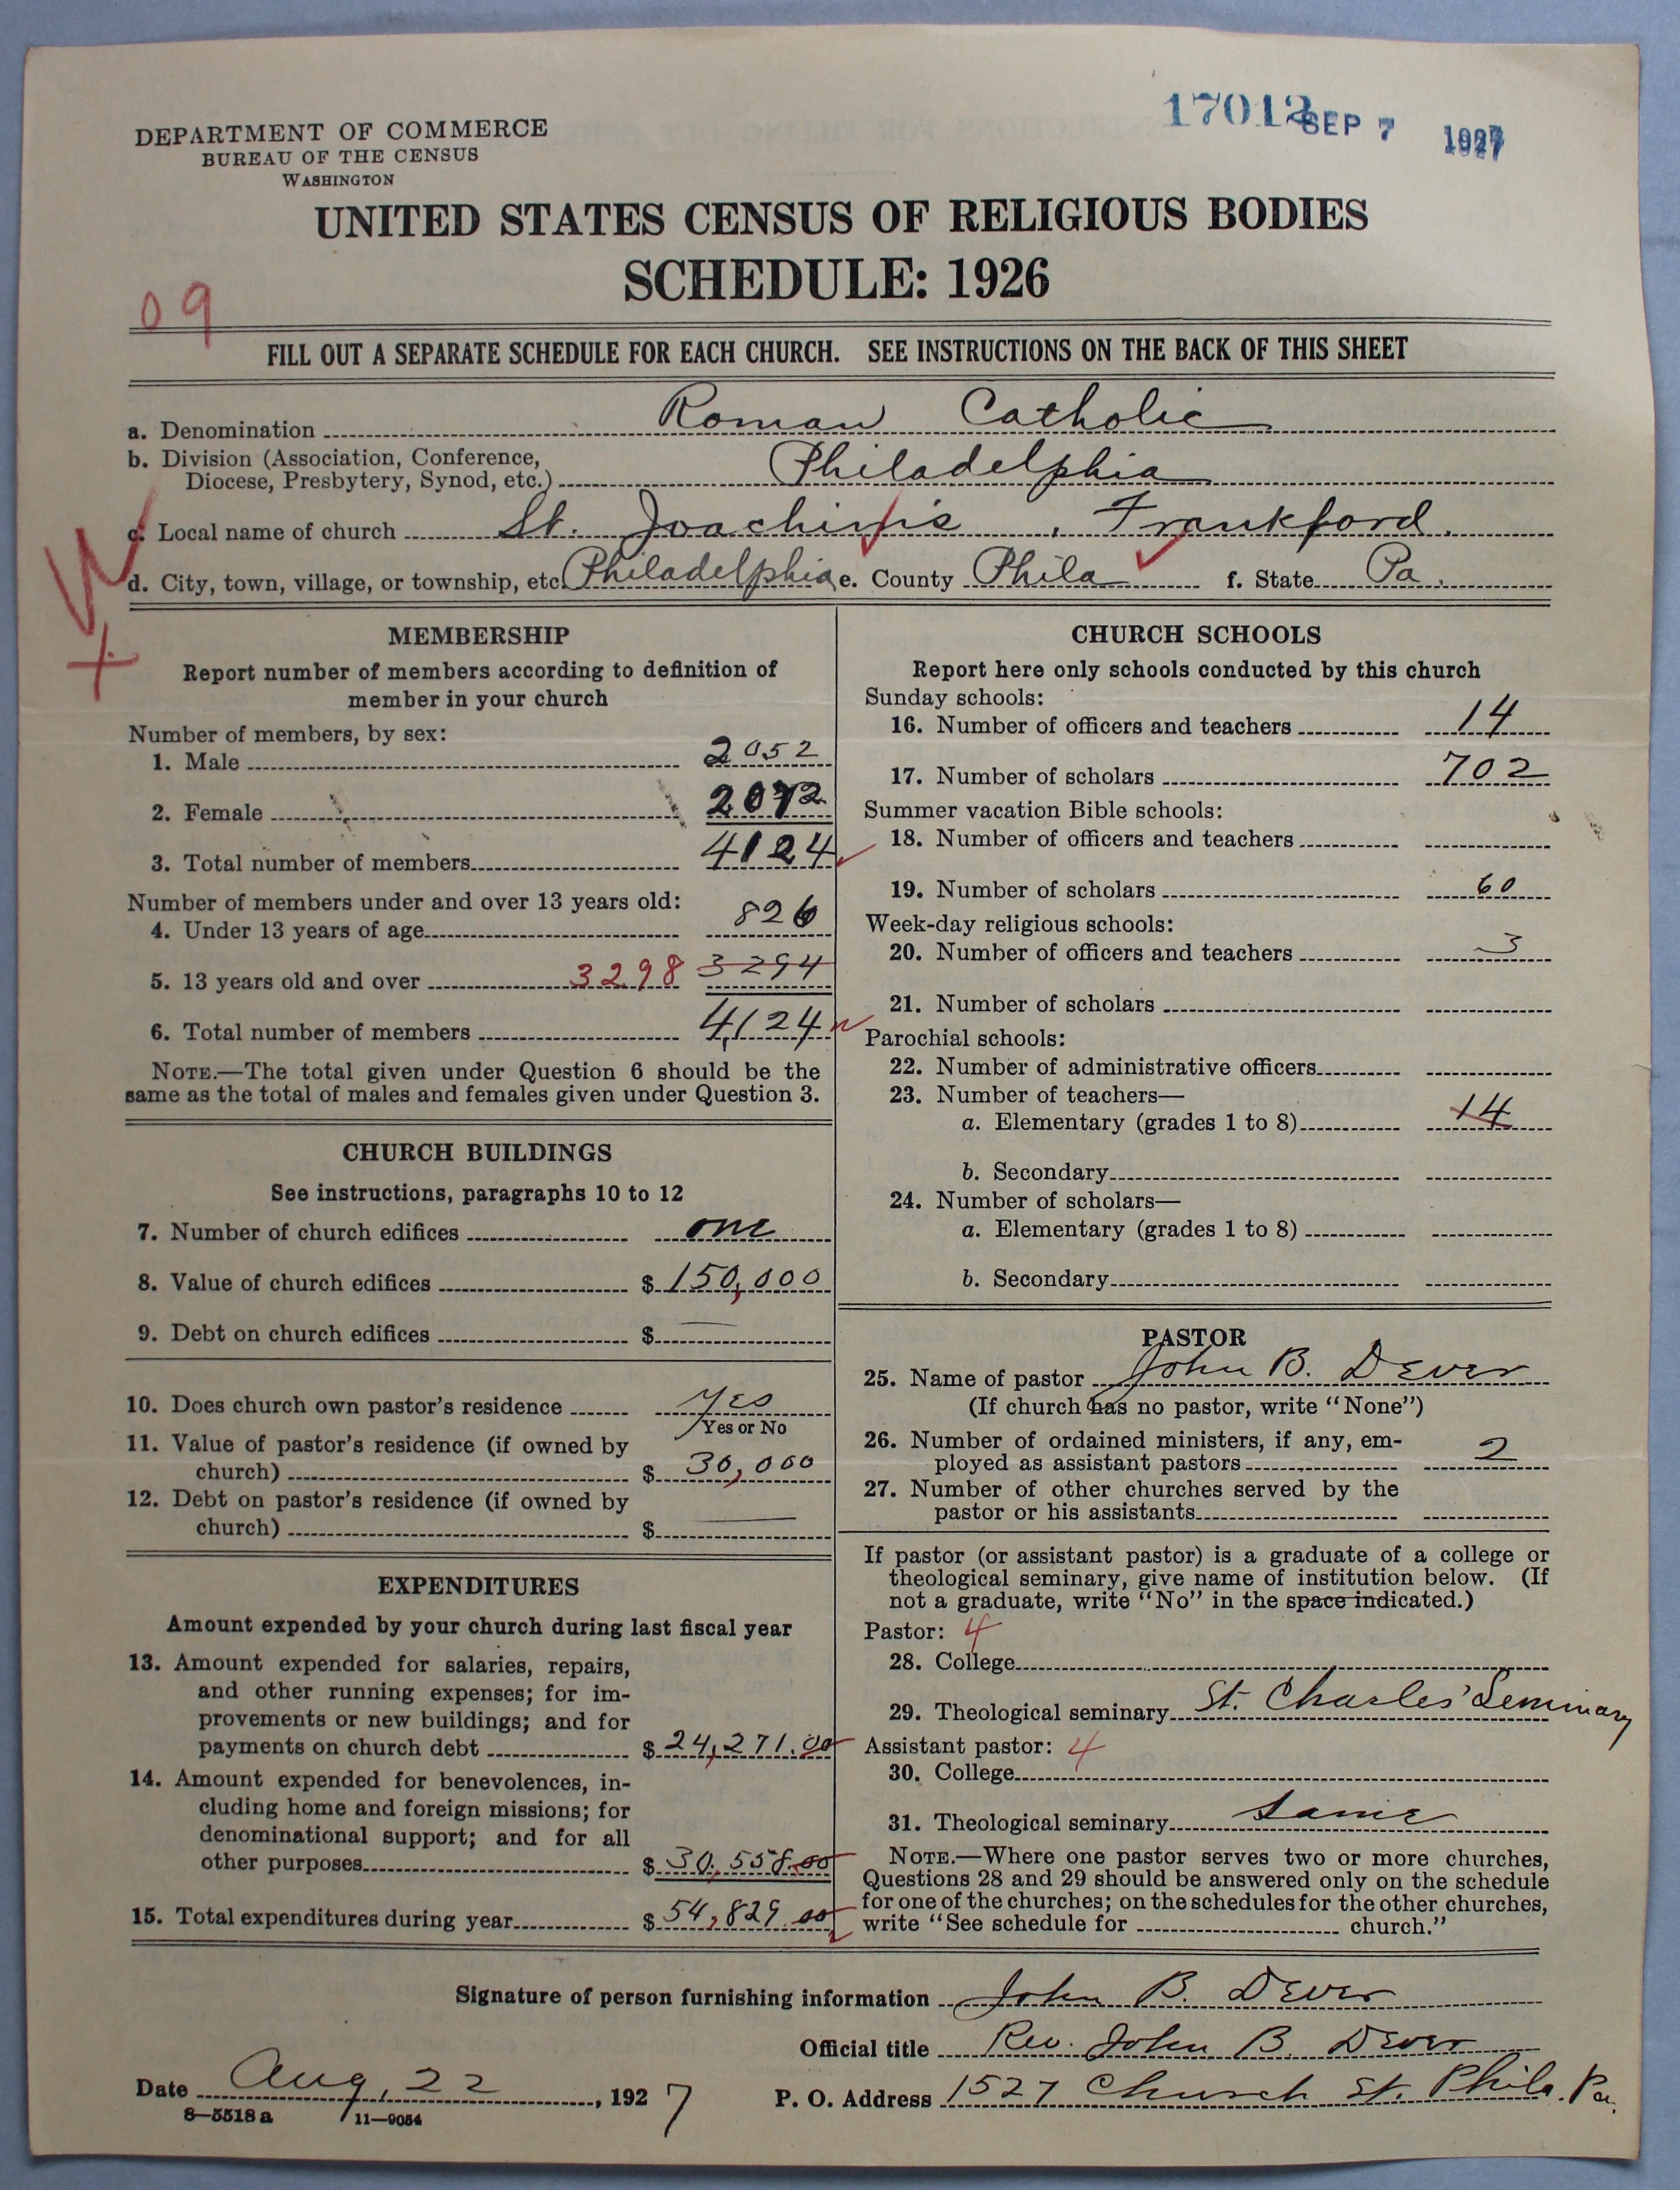 17012 SEP 7 1927
DEPARTMENT OF COMMERCE
BUREAU OF THE CENSUS
WASHINGTON
UNITED STATES CENSUS OF RELIGIOUS BODIES
SCHEDULE: 1926
09
FILL OUT A SEPARATE SCHEDULE FOR EACH CHURCH. SEE INSTRUCTIONS ON THE BACK OF THIS SHEET
a. Denomination Roman Catholic
b. Division (Association, Conference,
Diocese, Presbytery, Synod, etc.) Philadelphia
c. Local name of church St. Joachim's, Frankford.
d. City, town, village, or township, etc. Philadelphia e. County Phila f. State Pa.
MEMBERSHIP
Report number of members according to definition of
member in your church
Number of members, by sex:
1. Male 2052
2. Female 2072
3. Total number of members 4124
Number of members under and over 13 years old:
4. Under 13 years of age 826
5. 13 years old and over 3298 3294
6. Total number of members 4,124
NOTE.—The total given under Question 6 should be the
same as the total of males and females given under Question 3.
CHURCH BUILDINGS
See instructions, paragraphs 10 to 12
7. Number of church edifices one
8. Value of church edifices $ 150,000
9. Debt on church edifices $ —
10. Does church own pastor's residence Yes
Yes or No
11. Value of pastor's residence (if owned by
church) $ 30,000
12. Debt on pastor's residence (if owned by
church) $ —
EXPENDITURES
Amount expended by your church during last fiscal year
13. Amount expended for salaries, repairs,
and other running expenses; for im-
provements or new buildings; and for
payments on church debt $ 24,271.00
14. Amount expended for benevolences, in-
cluding home and foreign missions; for
denominational support; and for all
other purposes $ 30,558.00
15. Total expenditures during year $ 54,829.00
CHURCH SCHOOLS
Report here only schools conducted by this church
Sunday schools:
16. Number of officers and teachers 14
17. Number of scholars 702
Summer vacation Bible schools:
18. Number of officers and teachers
19. Number of scholars 60
Week-day religious schools:
20. Number of officers and teachers 3
21. Number of scholars
Parochial schools:
22. Number of administrative officers
23. Number of teachers—
a. Elementary (grades 1 to 8) 14
b. Secondary
24. Number of scholars—
a. Elementary (grades 1 to 8)
b. Secondary
PASTOR
25. Name of pastor John B. Dever
(If church has no pastor, write "None")
26. Number of ordained ministers, if any, em-
ployed as assistant pastors 2
27. Number of other churches served by the
pastor or his assistants
If pastor (or assistant pastor) is a graduate of a college or
theological seminary, give name of institution below. (If
not a graduate, write "No" in the space indicated.)
Pastor: 4
28. College
29. Theological seminary St. Charles' Seminary
Assistant pastor: 4
30. College
31. Theological seminary Same
NOTE.—Where one pastor serves two or more churches,
Questions 28 and 29 should be answered only on the schedule
for one of the churches; on the schedules for the other churches,
write "See schedule for church."
Signature of person furnishing information John B. Dever
Official title Rev. John B. Dever
Date Aug, 22, 1927 P. O. Address 1527 Church St. Phila. Pa.
8—5518a 11—9054